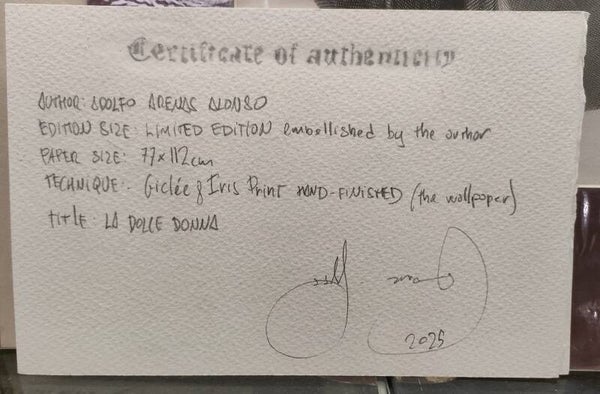 Certificate of authenticity
AUTHOR: ADOLFO ARENAS ALONSO
EDITION SIZE: LIMITED EDITION embellished by the author
PAPER SIZE: 77x112cm
TECHNIQUE: Giclée & Iris Print HAND-FINISHED (the wallpaper)
TITLE: LA DOLCE DONNA
2025